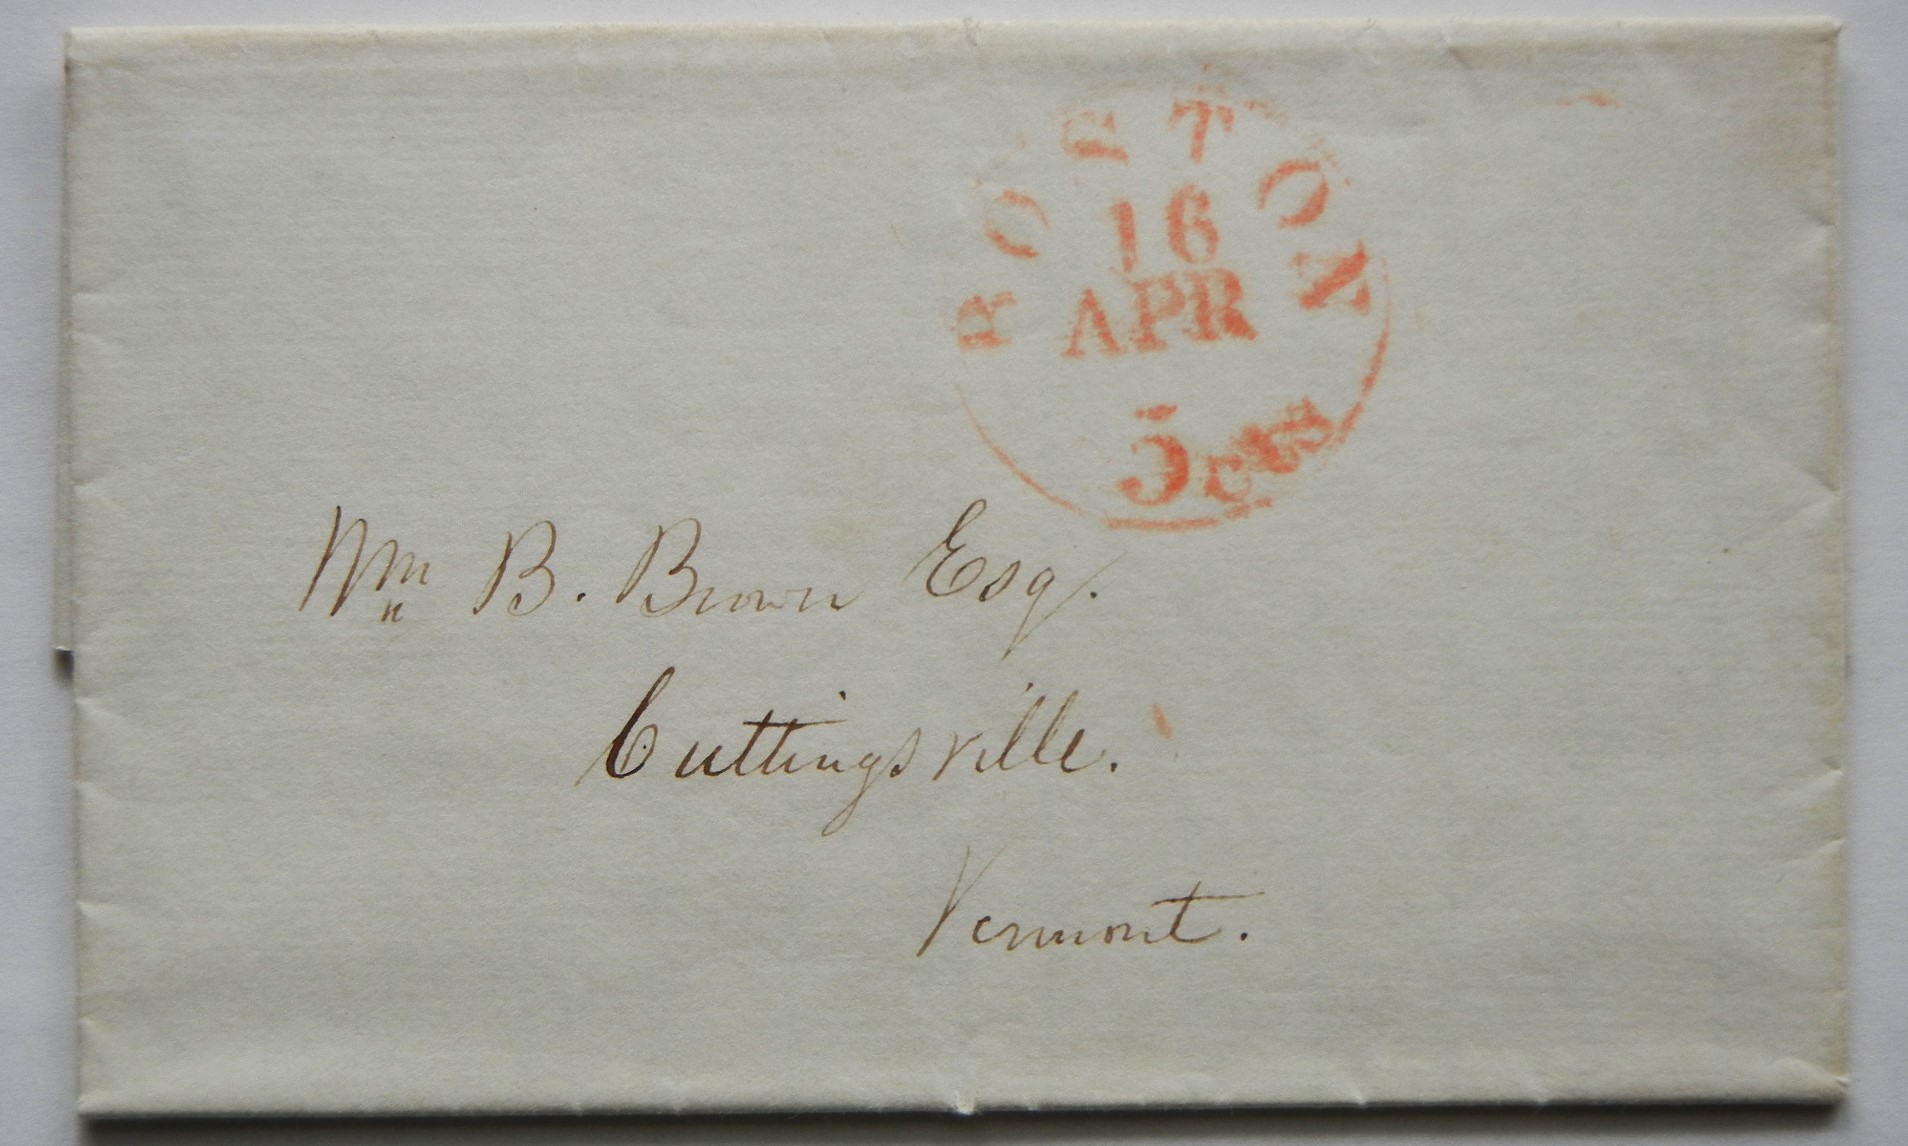 BOSTON
16
APR
5 cts
Wm B. Brown Esq.
Cuttingsville.
Vermont.